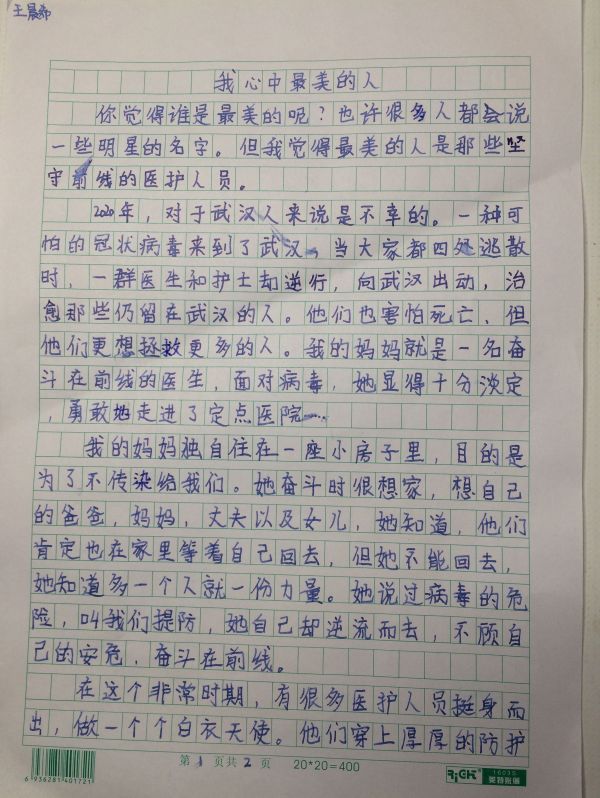 王晨希
我心中最美的人
你觉得谁是最美的呢？也许很多人都会说
一些明星的名字。但我觉得最美的人是那些坚
守前线的医护人员。
2020年，对于武汉人来说是不幸的。一种可
怕的冠状病毒来到了武汉、当大家都四处逃散
时，一群医生和护士却逆行，向武汉出动，治
愈那些仍留在武汉的人。他们也害怕死亡、但
他们更想拯救更多的人。我的妈妈就是一名奋
斗在前线的医生，面对病毒，她显得十分淡定
，勇敢地走进了定点医院……
我的妈妈独自住在一座小房子里，目的是
为了不传染给我们。她奋斗时很想家，想自己
的爸爸，妈妈，丈夫以及女儿，她知道，他们
肯定也在家里等着自己回去，但她不能回去，
她知道多一个人就一份力量。她说过病毒的危
险，叫我们提防，她自己却逆流而去，不顾自
己的安危，奋斗在前线。
在这个非常时期，有很多医护人员挺身而
出，做一个个白衣天使。他们穿上厚厚的防护
第1页共2页 20*20=400
RiCH 1603S
6936281401721